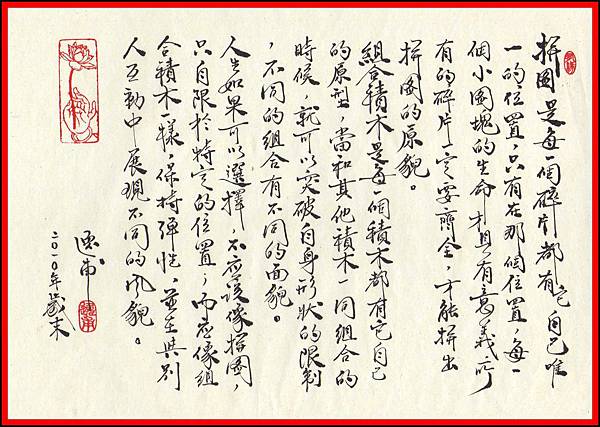 拼圖是每一個碎片都有它自己唯
一的位置，只有在那個位置，每一
個小圖塊的生命才具有意義，所
有的碎片一定要齊全，才能拼出
拼圖的原貌。
組合積木是每一個積木都有它自己
的原型，當和其他積木一同組合的
時候，就可以突破自身形狀的限制
，不同的組合有不同的面貌。
人生如果可以選擇，不應該像拼圖，
只自限於特定的位置；而應像組
合積木一樣，保持彈性，並在與別
人互動中展現不同的風貌。
二〇一〇年歲末